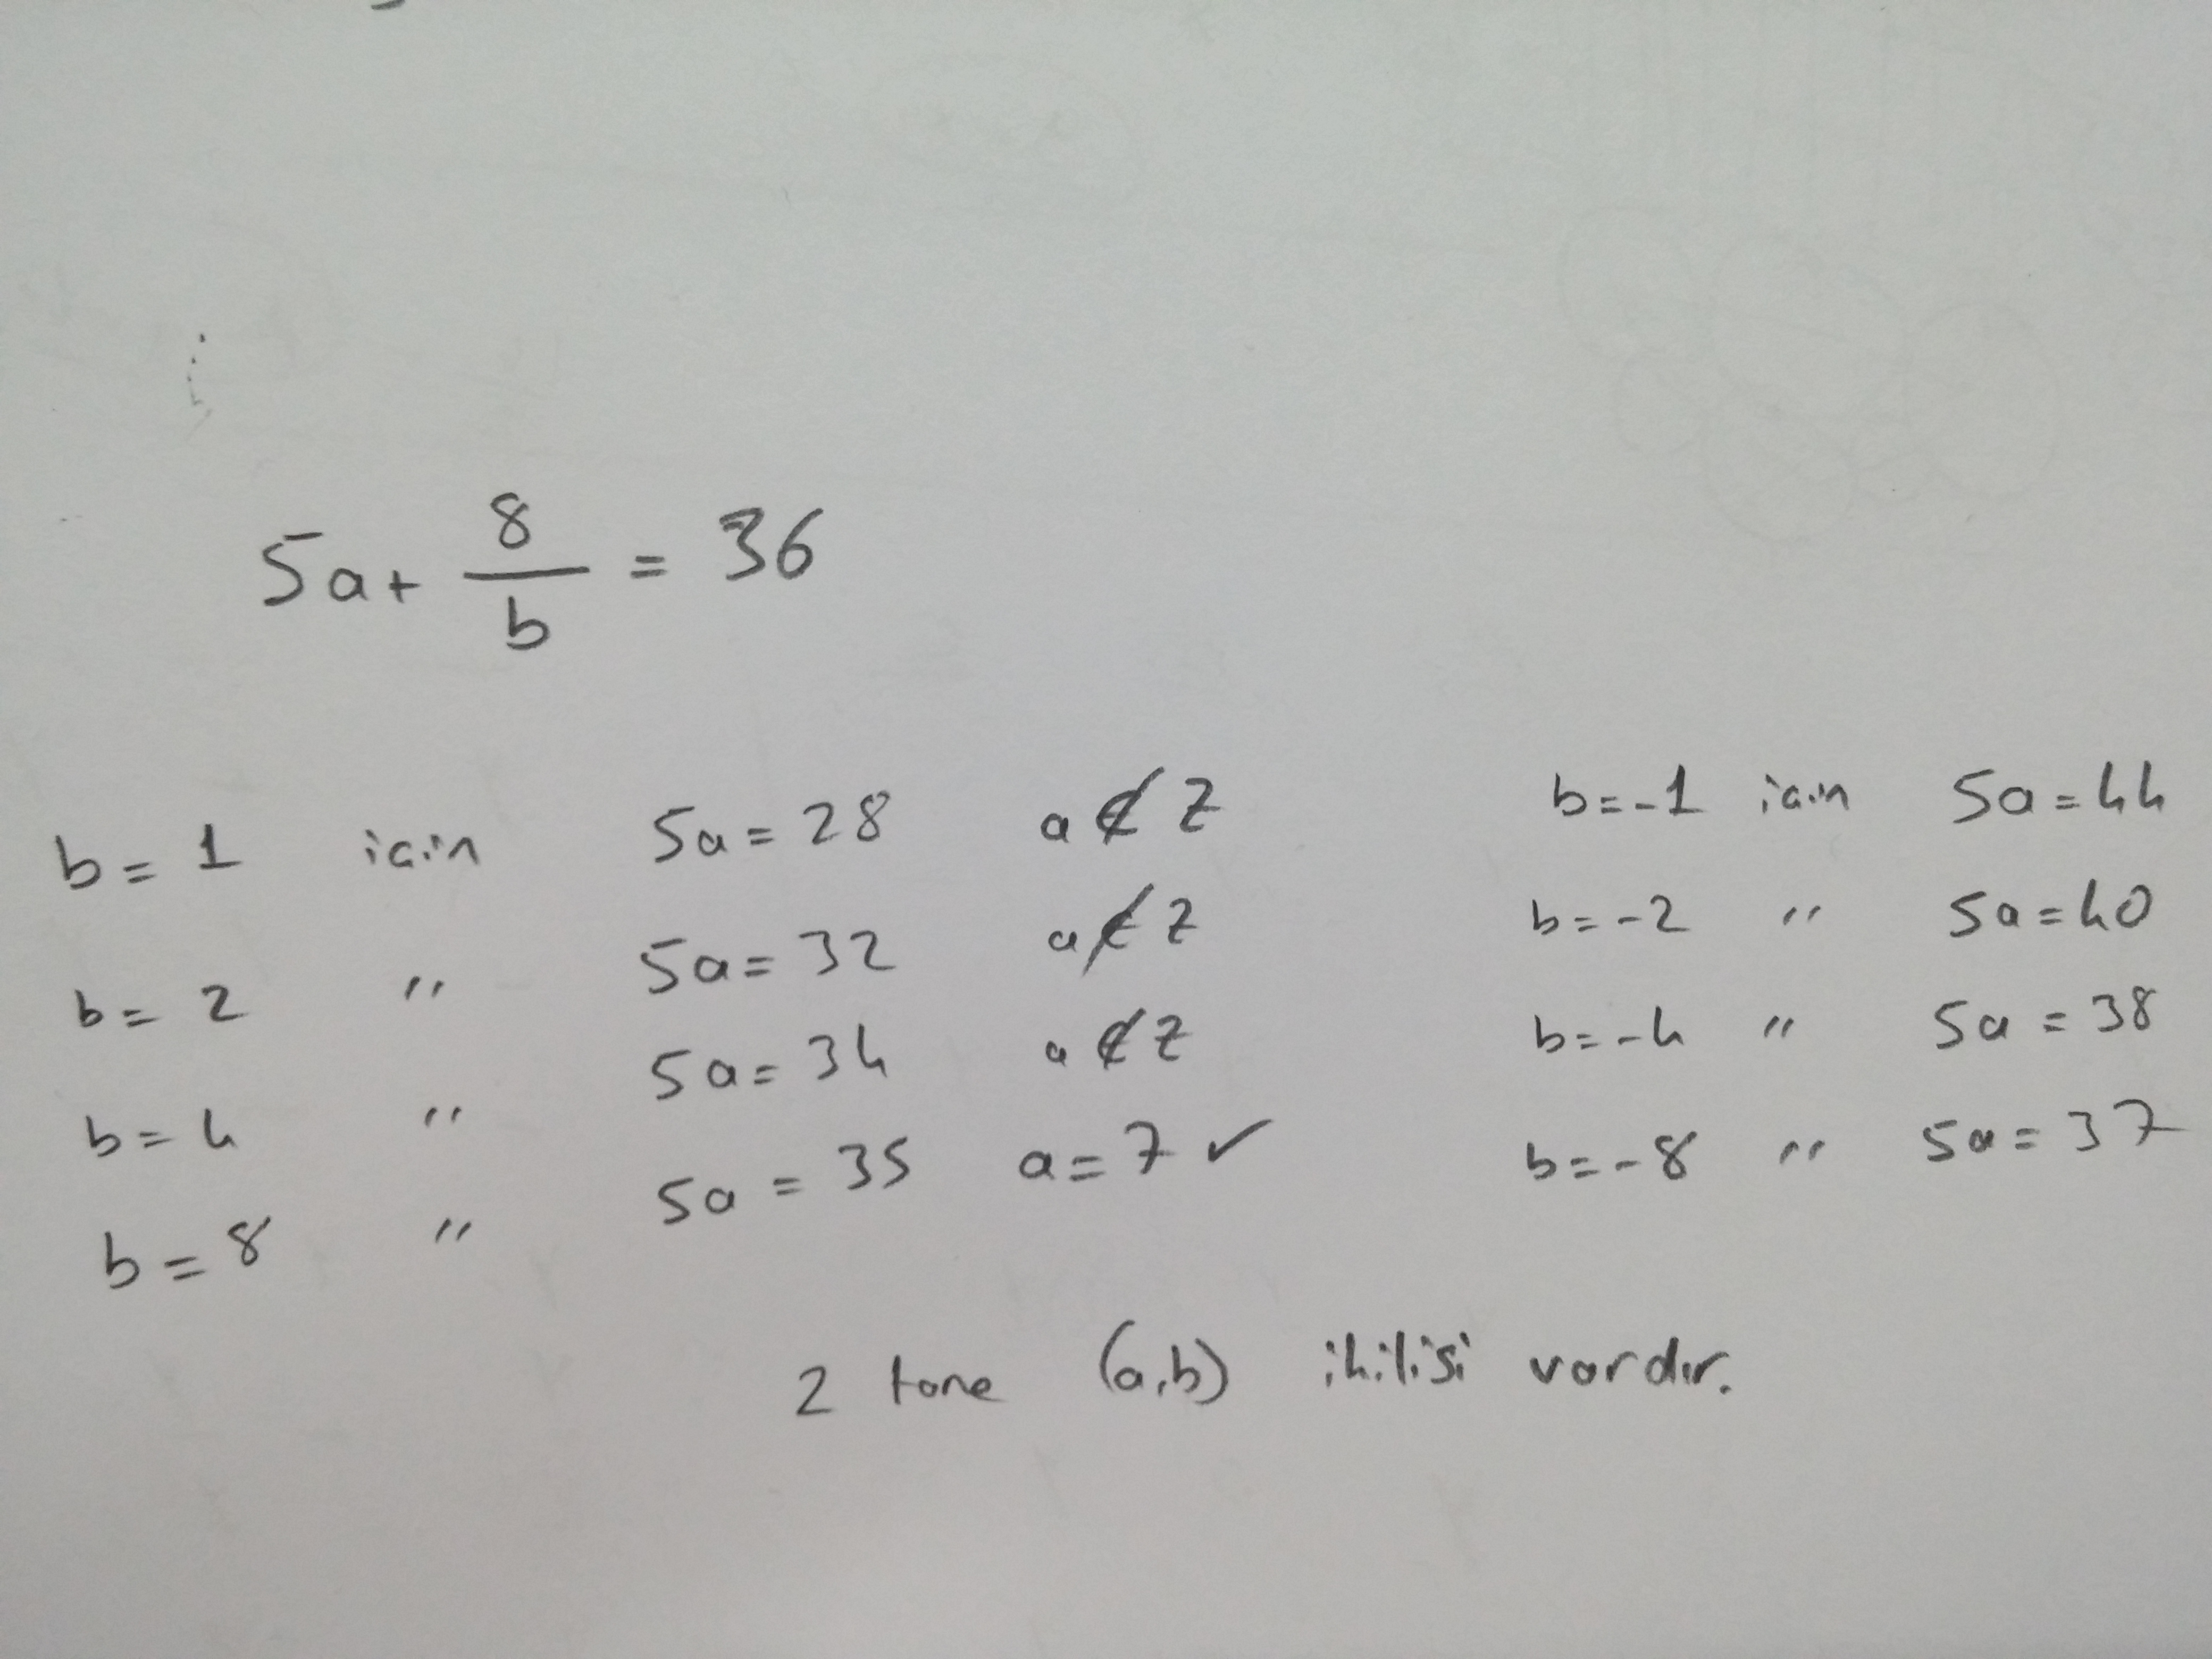 5a + 8/b = 36
b = 1 için 5a = 28 a ∉ Z b = -1 için 5a = 44
b = 2 " 5a = 32 a ∉ Z b = -2 " 5a = 40
b = 4 " 5a = 34 a ∉ Z b = -4 " 5a = 38
b = 8 " 5a = 35 a = 7 ✓ b = -8 " 5a = 37
2 tane (a,b) ikilisi vardır.